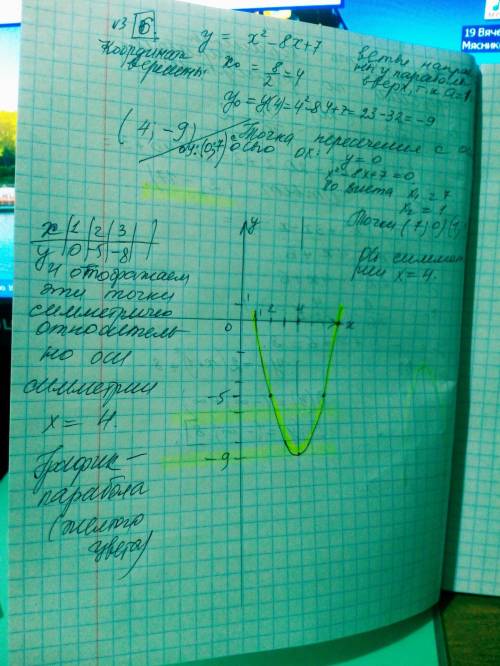 √3 б
y = x² - 8x + 7
Координаты вершины
x₀ = 8/2 = 4
ветви направ
лены параболы
вверх, т.к a=1
y₀ = y(4) = 4² - 8·4 + 7 = 23 - 32 = -9
(4; -9)
оу: (0;7)
Точка пересечения с ос
осью ох:
y = 0
x² - 8x + 7 = 0
По виета x₁ = 7
x₂ = 1
Точки (7;0) (1;
x | 1 | 2 | 3 |
y | 0 | -5 | -8 |
и отображаем
эти точки
симметрично
относитель
но оси
симметрии
x = 4.
Ось симмет
рии x = 4.
График -
парабола
(желтого
цвета)
y
1
0
1 2 4
x
-5
-9
19 Вяче
Мясник